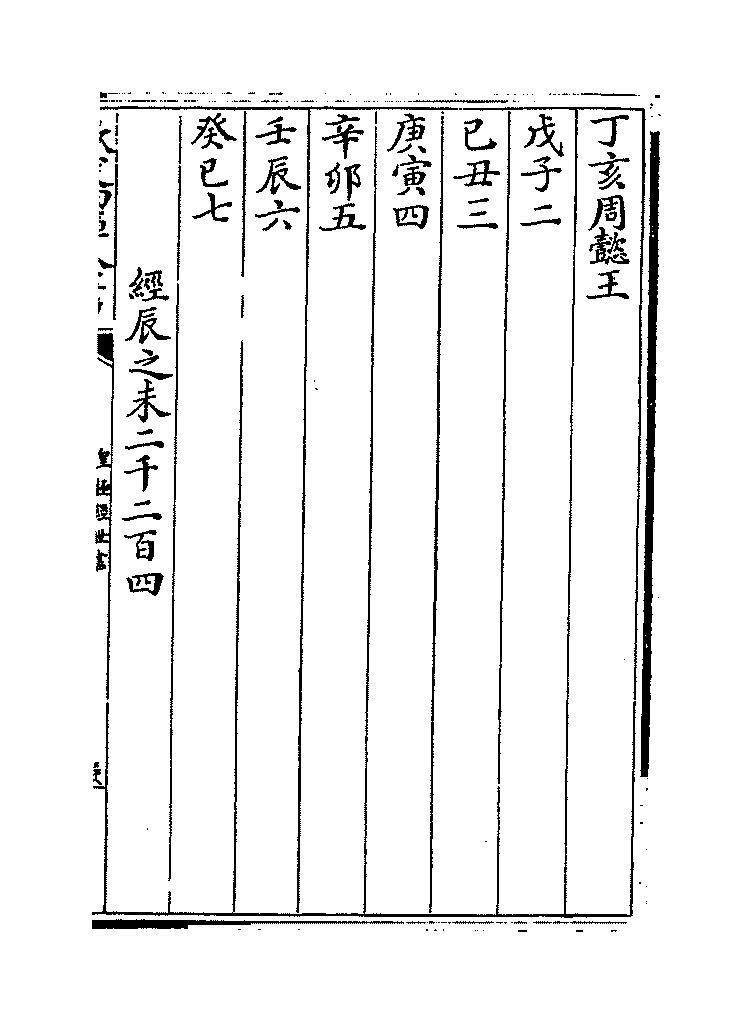 丁亥周懿王
戊子二
己丑三
庚寅四
辛卯五
壬辰六
癸巳七
經辰之未二千二百四
皇極經世書